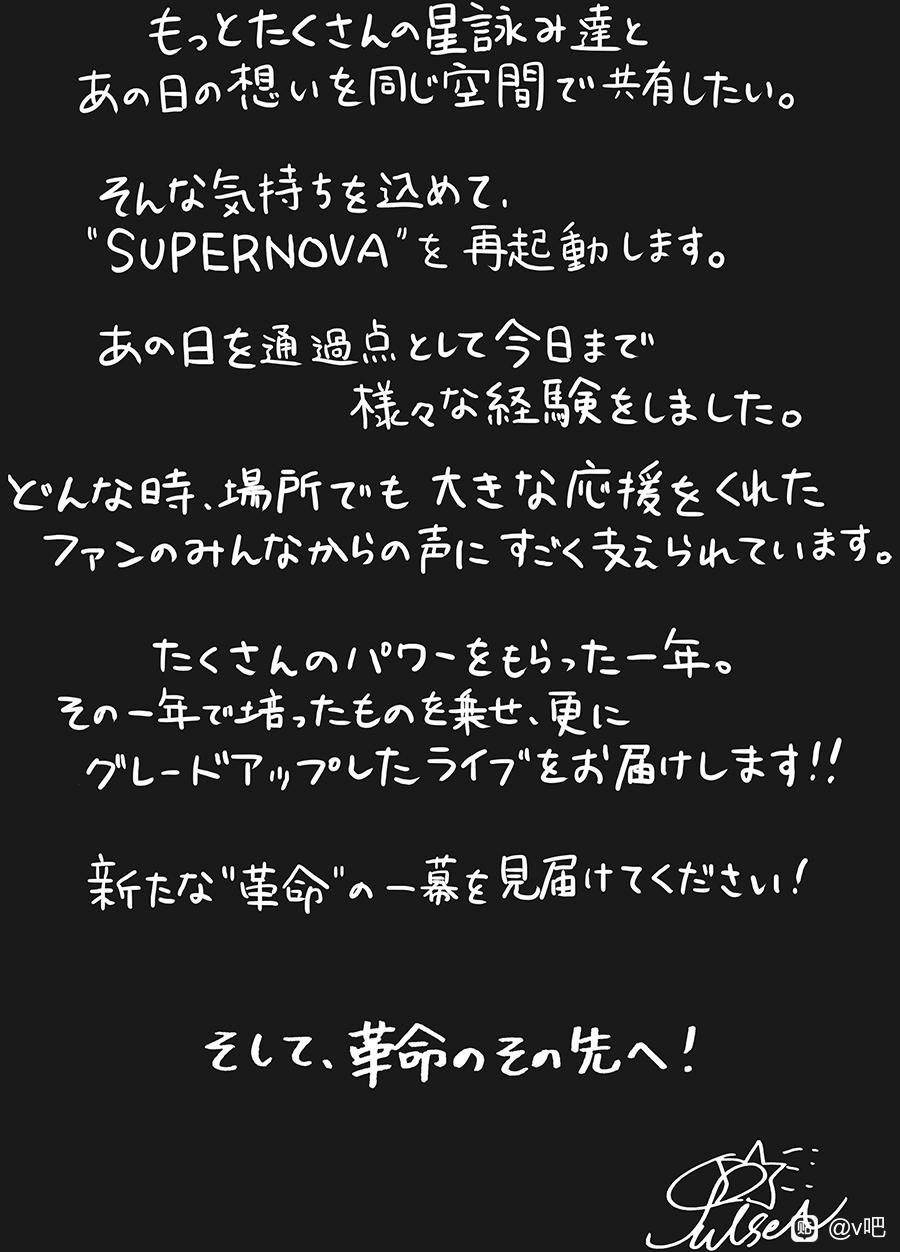 もっとたくさんの星詠み達と
あの日の想いを同じ空間で共有したい。
そんな気持ちを込めて、
"SUPERNOVA"を再起動します。
あの日を通過点として今日まで
様々な経験をしました。
どんな時、場所でも大きな応援をくれた
ファンのみんなからの声にすごく支えられています。
たくさんのパワーをもらった一年。
その一年で培ったものを乗せ、更に
グレードアップしたライブをお届けします!!
新たな"革命"の一幕を見届けてください!
そして、革命のその先へ!
Pulses
贴 @v吧